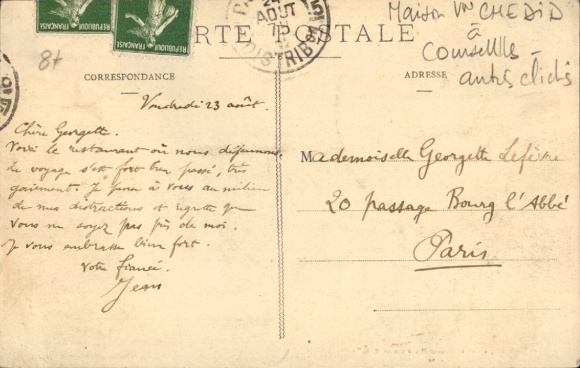 RÉPUBLIQUE FRANÇAISE
RÉPUBLIQUE FRANÇAISE
24
AOUT
DISTRIB
CARTE POSTALE
Maison Vn CHEDID
à
Courselles -
autres clichés
8t
CORRESPONDANCE
ADRESSE
Vendredi 23 août.
Chère Georgette.
Voici le restaurant où nous déjeunons.
Le voyage s'est fort bien passé, très
gaiement. Je pense à vous au milieu
de mes distractions et regrette que
vous ne soyez pas près de moi.
Je vous embrasse bien fort.
Votre fiancé.
Jean
Mademoiselle Georgette Lefèvre
20 passage Bourg l'Abbé
Paris